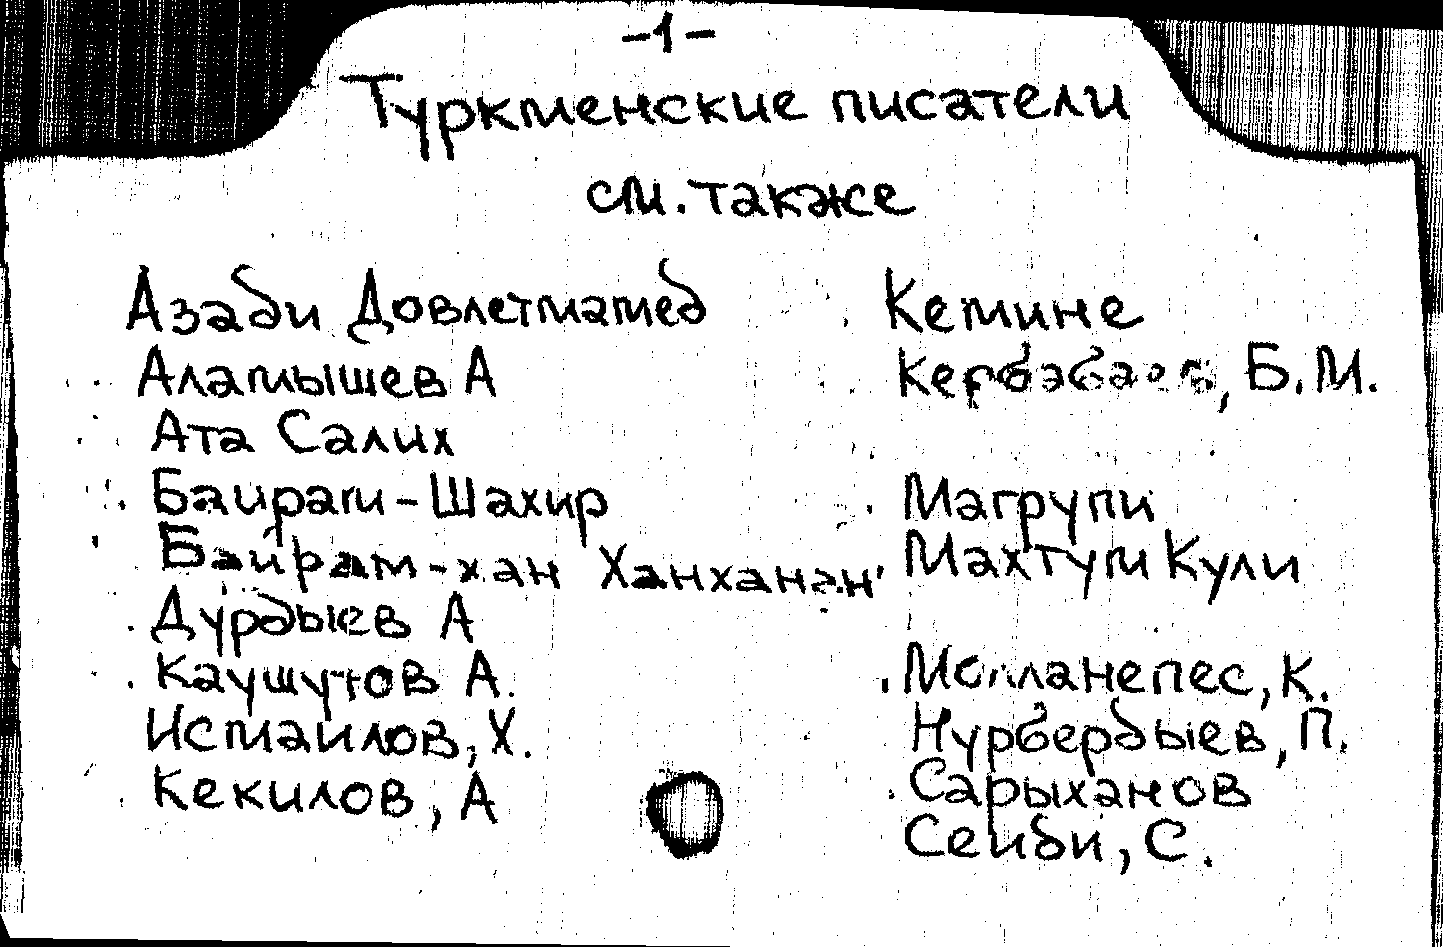 -1-
Туркменские писатели
см. также
Азади Довлетмамед
Аламышев А
Ата Салих
Байрам-Шахир
Байрам-хан Ханханан
Дурдыев А
Каушутов А.
Исмаилов, Х.
Кекилов, А
Кемине
Кербабаев, Б.М.
Магрупи
Махтум Кули
Молланепес, К.
Нурбердыев, П.
Сарыханов
Сеиди, С.